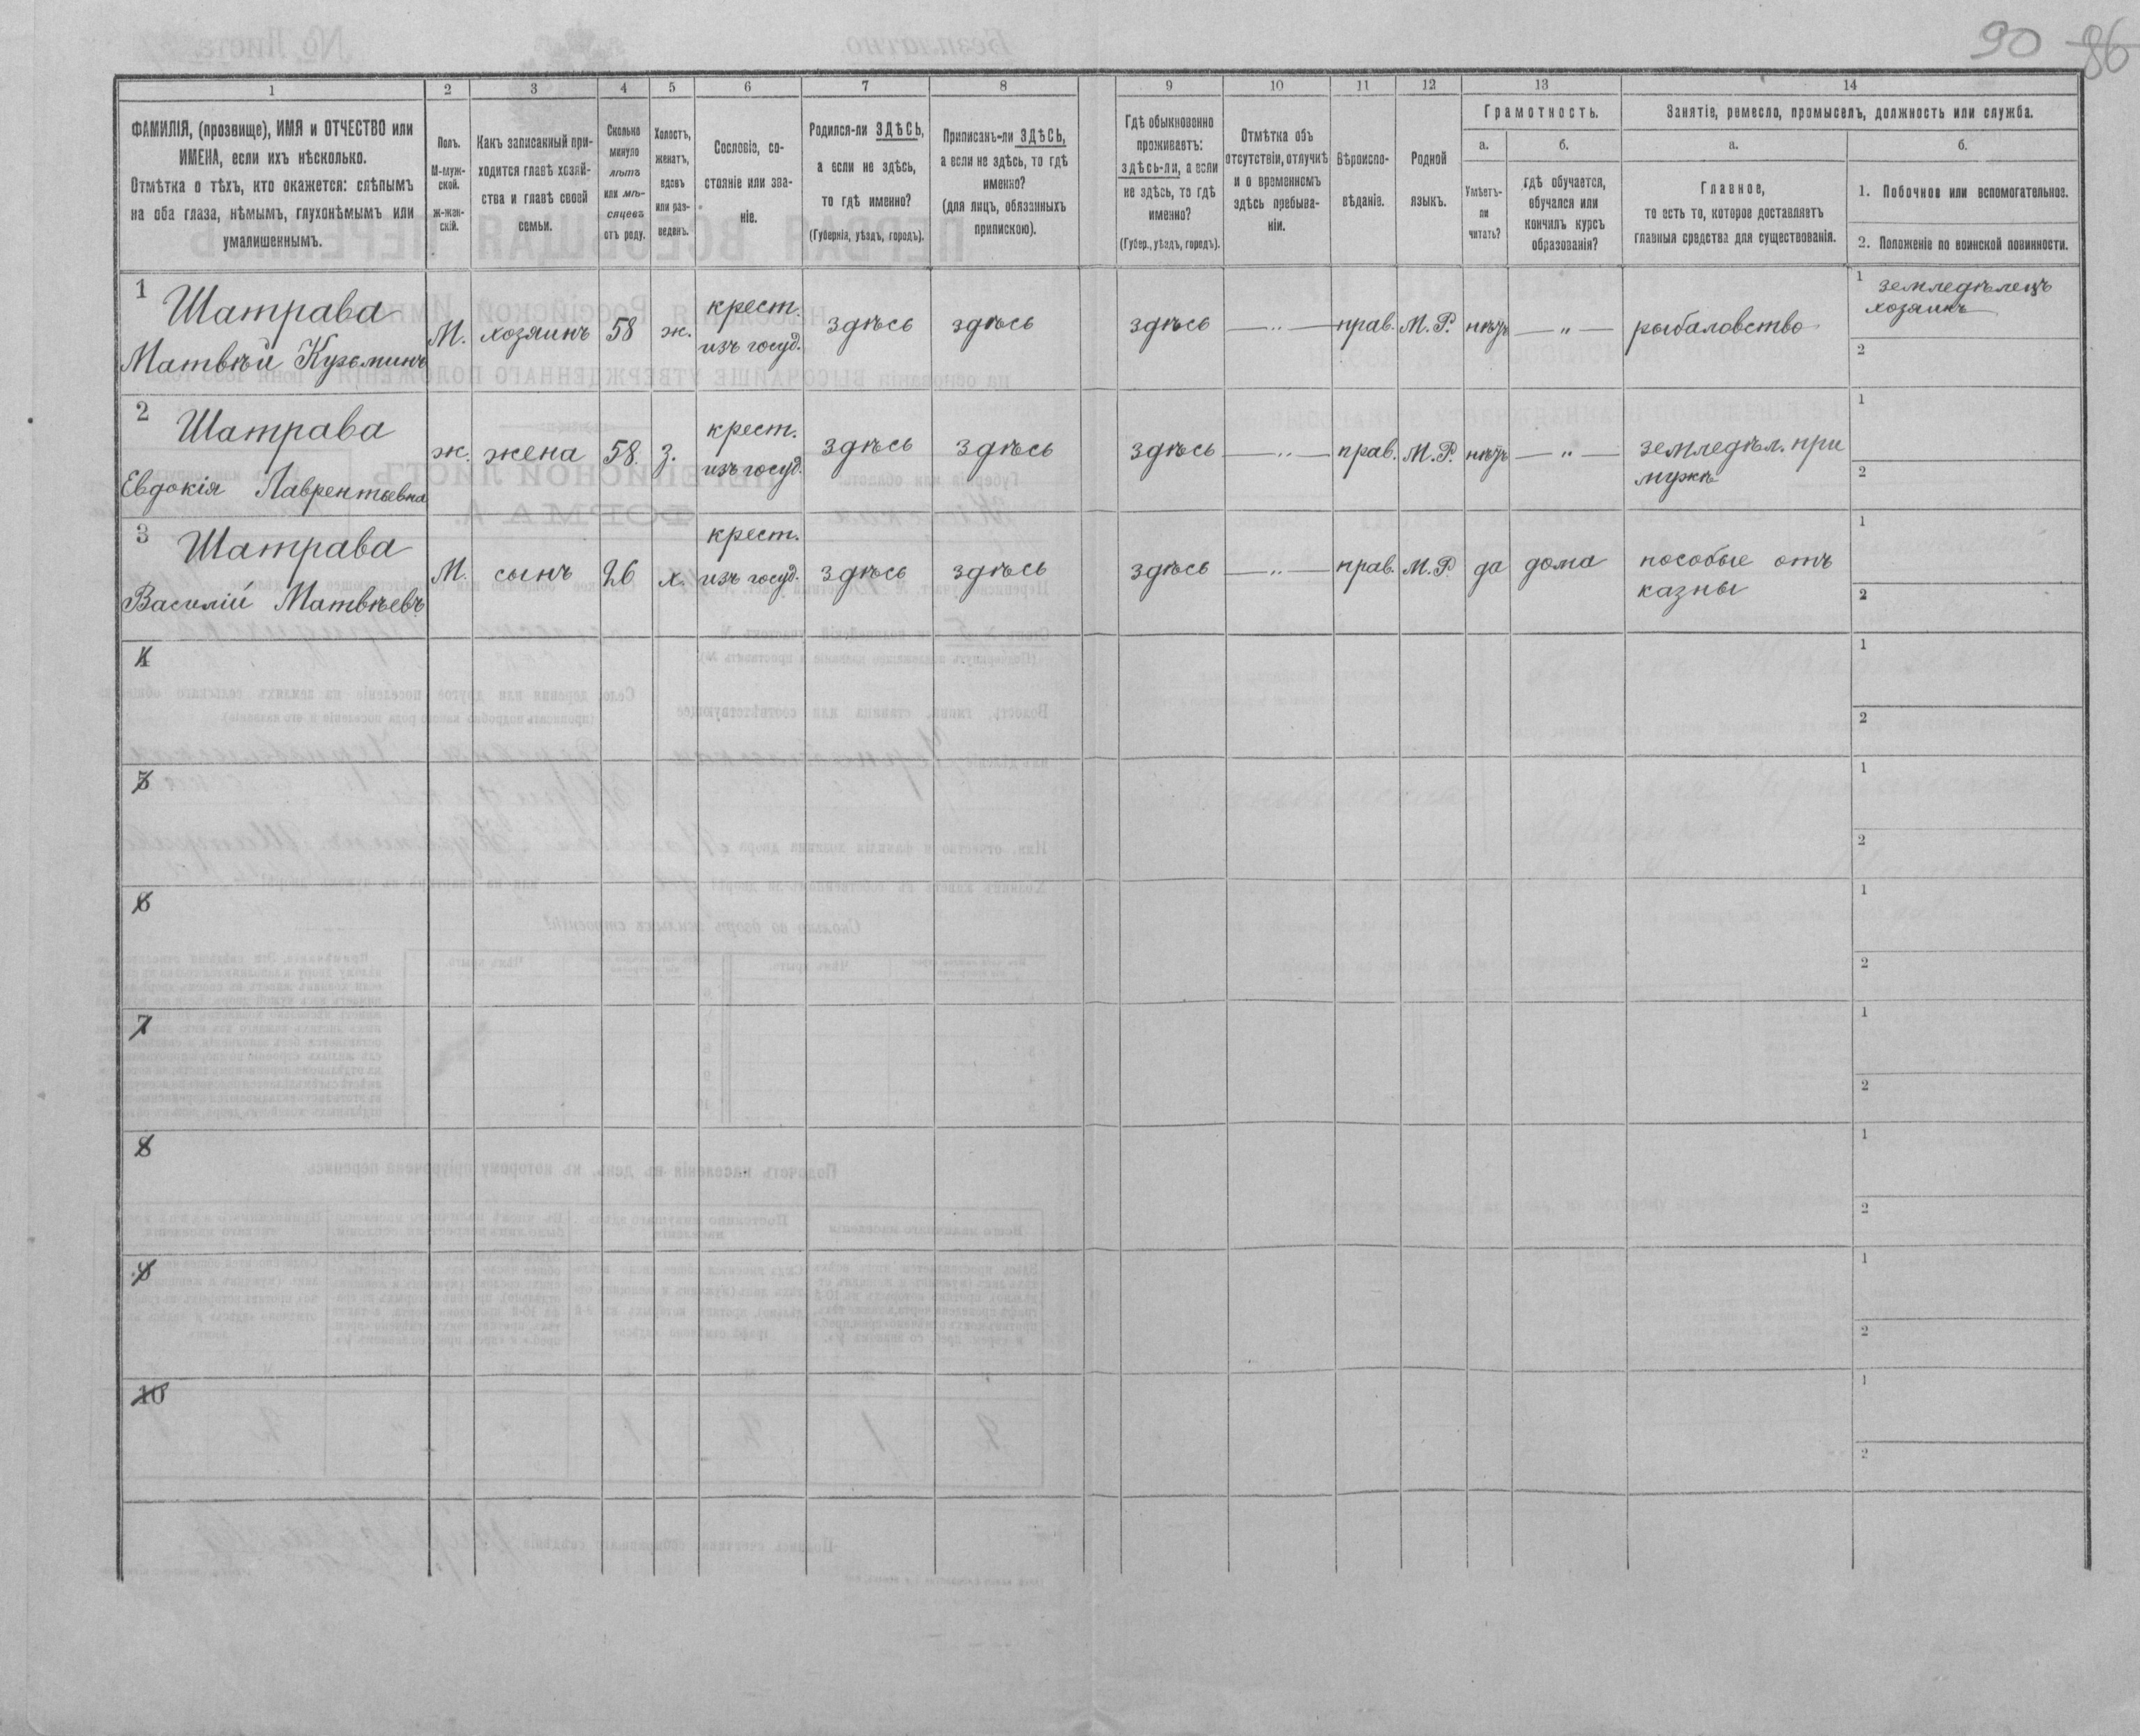 90 86
1 2 3 4 5 6 7 8 9 10 11 12 13 14
ФАМИЛІЯ, (прозвище), ИМЯ и ОТЧЕСТВО или
ИМЕНА, если ихъ нѣсколько.
Отмѣтка о тѣхъ, кто окажется: слѣпымъ
на оба глаза, нѣмымъ, глухонѣмымъ или
умалишеннымъ.
Полъ.
М-муж-
ской.
ж-жен-
скій.
Какъ записанный при-
ходится главѣ хозяй-
ства и главѣ своей
семьи.
Сколько
минуло
лѣтъ
или мѣ-
сяцевъ
отъ роду.
Холостъ,
женатъ,
вдовъ
или раз-
веденъ.
Сословіе, со-
стояніе или зва-
ніе.
Родился-ли ЗДѢСЬ,
а если не здѣсь,
то гдѣ именно?
(Губернія, уѣздъ, городъ).
Приписанъ-ли ЗДѢСЬ,
а если не здѣсь, то гдѣ
именно?
(для лицъ, обязанныхъ
припискою).
Гдѣ обыкновенно
проживаетъ:
здѣсь-ли, а если
не здѣсь, то гдѣ
именно?
(Губер., уѣздъ, городъ).
Отмѣтка объ
отсутствіи, отлучкѣ
и о временномъ
здѣсь пребыва-
ніи.
Вѣроиспо-
вѣданіе.
Родной
языкъ.
Грамотность.
а.
Умѣетъ-
ли
читать?
б.
гдѣ обучается,
обучался или
кончилъ курсъ
образованія?
Занятіе, ремесло, промыселъ, должность или служба.
а.
Главное,
то есть то, которое доставляетъ
главныя средства для существованія.
б.
1. Побочное или вспомогательное.
2. Положеніе по воинской повинности.
1 Шатрава
Матвѣй Кузьминъ
М. хозяинъ 58 ж. крест.
изъ госуд. здѣсь здѣсь здѣсь — „ — прав. М.Р. нѣтъ — „ — рыбаловство
1 земледѣлецъ
хозяинъ
2
2 Шатрава
Евдокія Лаврентьевна
ж. жена 58. з. крест.
изъ госуд. здѣсь здѣсь здѣсь — „ — прав. М.Р. нѣтъ — „ — земледѣл. при
мужѣ
1
2
3 Шатрава
Василій Матвѣевъ
М. сынъ 26 х. крест.
изъ госуд. здѣсь здѣсь здѣсь — „ — прав. М.Р. да дома пособые отъ
казны
1
2
4
1
2
5
1
2
6
1
2
7
1
2
8
1
2
9
1
2
10
1
2